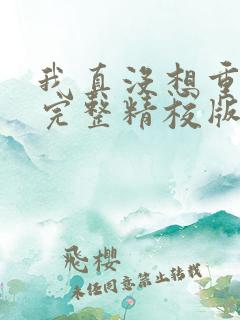 我真没想重
完整精校版
飛櫻
未经同意禁止转载